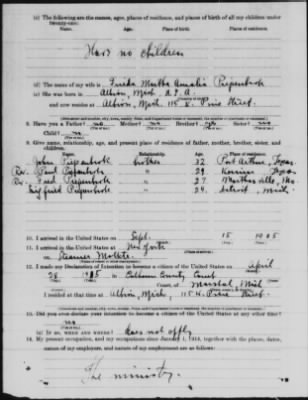 (c) The following are the names, ages, place of residence, and places of birth of all my children under
twenty-one:
Name. Age. Place of residence. Place of birth.
Has no children
(d) The name of my wife is Frida Martha Amalia Piepenbrok
(e) She was born in Albion, Mich. U.S.A.
and now resides at Albion, Mich. 115 E. Pine Street.
8. Have you a Father? no Mother? no Brother? yes Sister? no
Child? no
9. Give name, relationship, age, and present place of residence of father, mother, brother, sister, and
children.
Name. Relationship. Age. Residence.
John Piepenbrok brother 32 Port Arthur, Texas
Rev. Paul Piepenbrok " 29 Texas
Rev. Fred Piepenbrok " 27 Marthasville, Mo
Siegfried Piepenbrok " 24 Detroit, Mich.
10. I arrived in the United States on Sept. 15 1905
11. I arrived in the United States at New York
on Steamer Moltke
12. I made my Declaration of Intention to become a citizen of the United States on April
28 1915 in Calhoun County Court
Court, at Marshall, Mich
I resided at that time at Albion, Mich, 115 E. Pine Street.
13. Did you ever declare your intention to become a citizen of the United States at any other time?
no
(a) If so, when and where? does not apply
14. My present occupation, and my occupations since January 1, 1913, together with places and dates of
my employment, and nature of my employment are as follows:
The ministry.